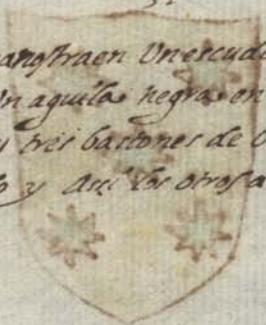 traen Un escudo
Un aguila negra en
y tres bastones de
y Asi los otros a